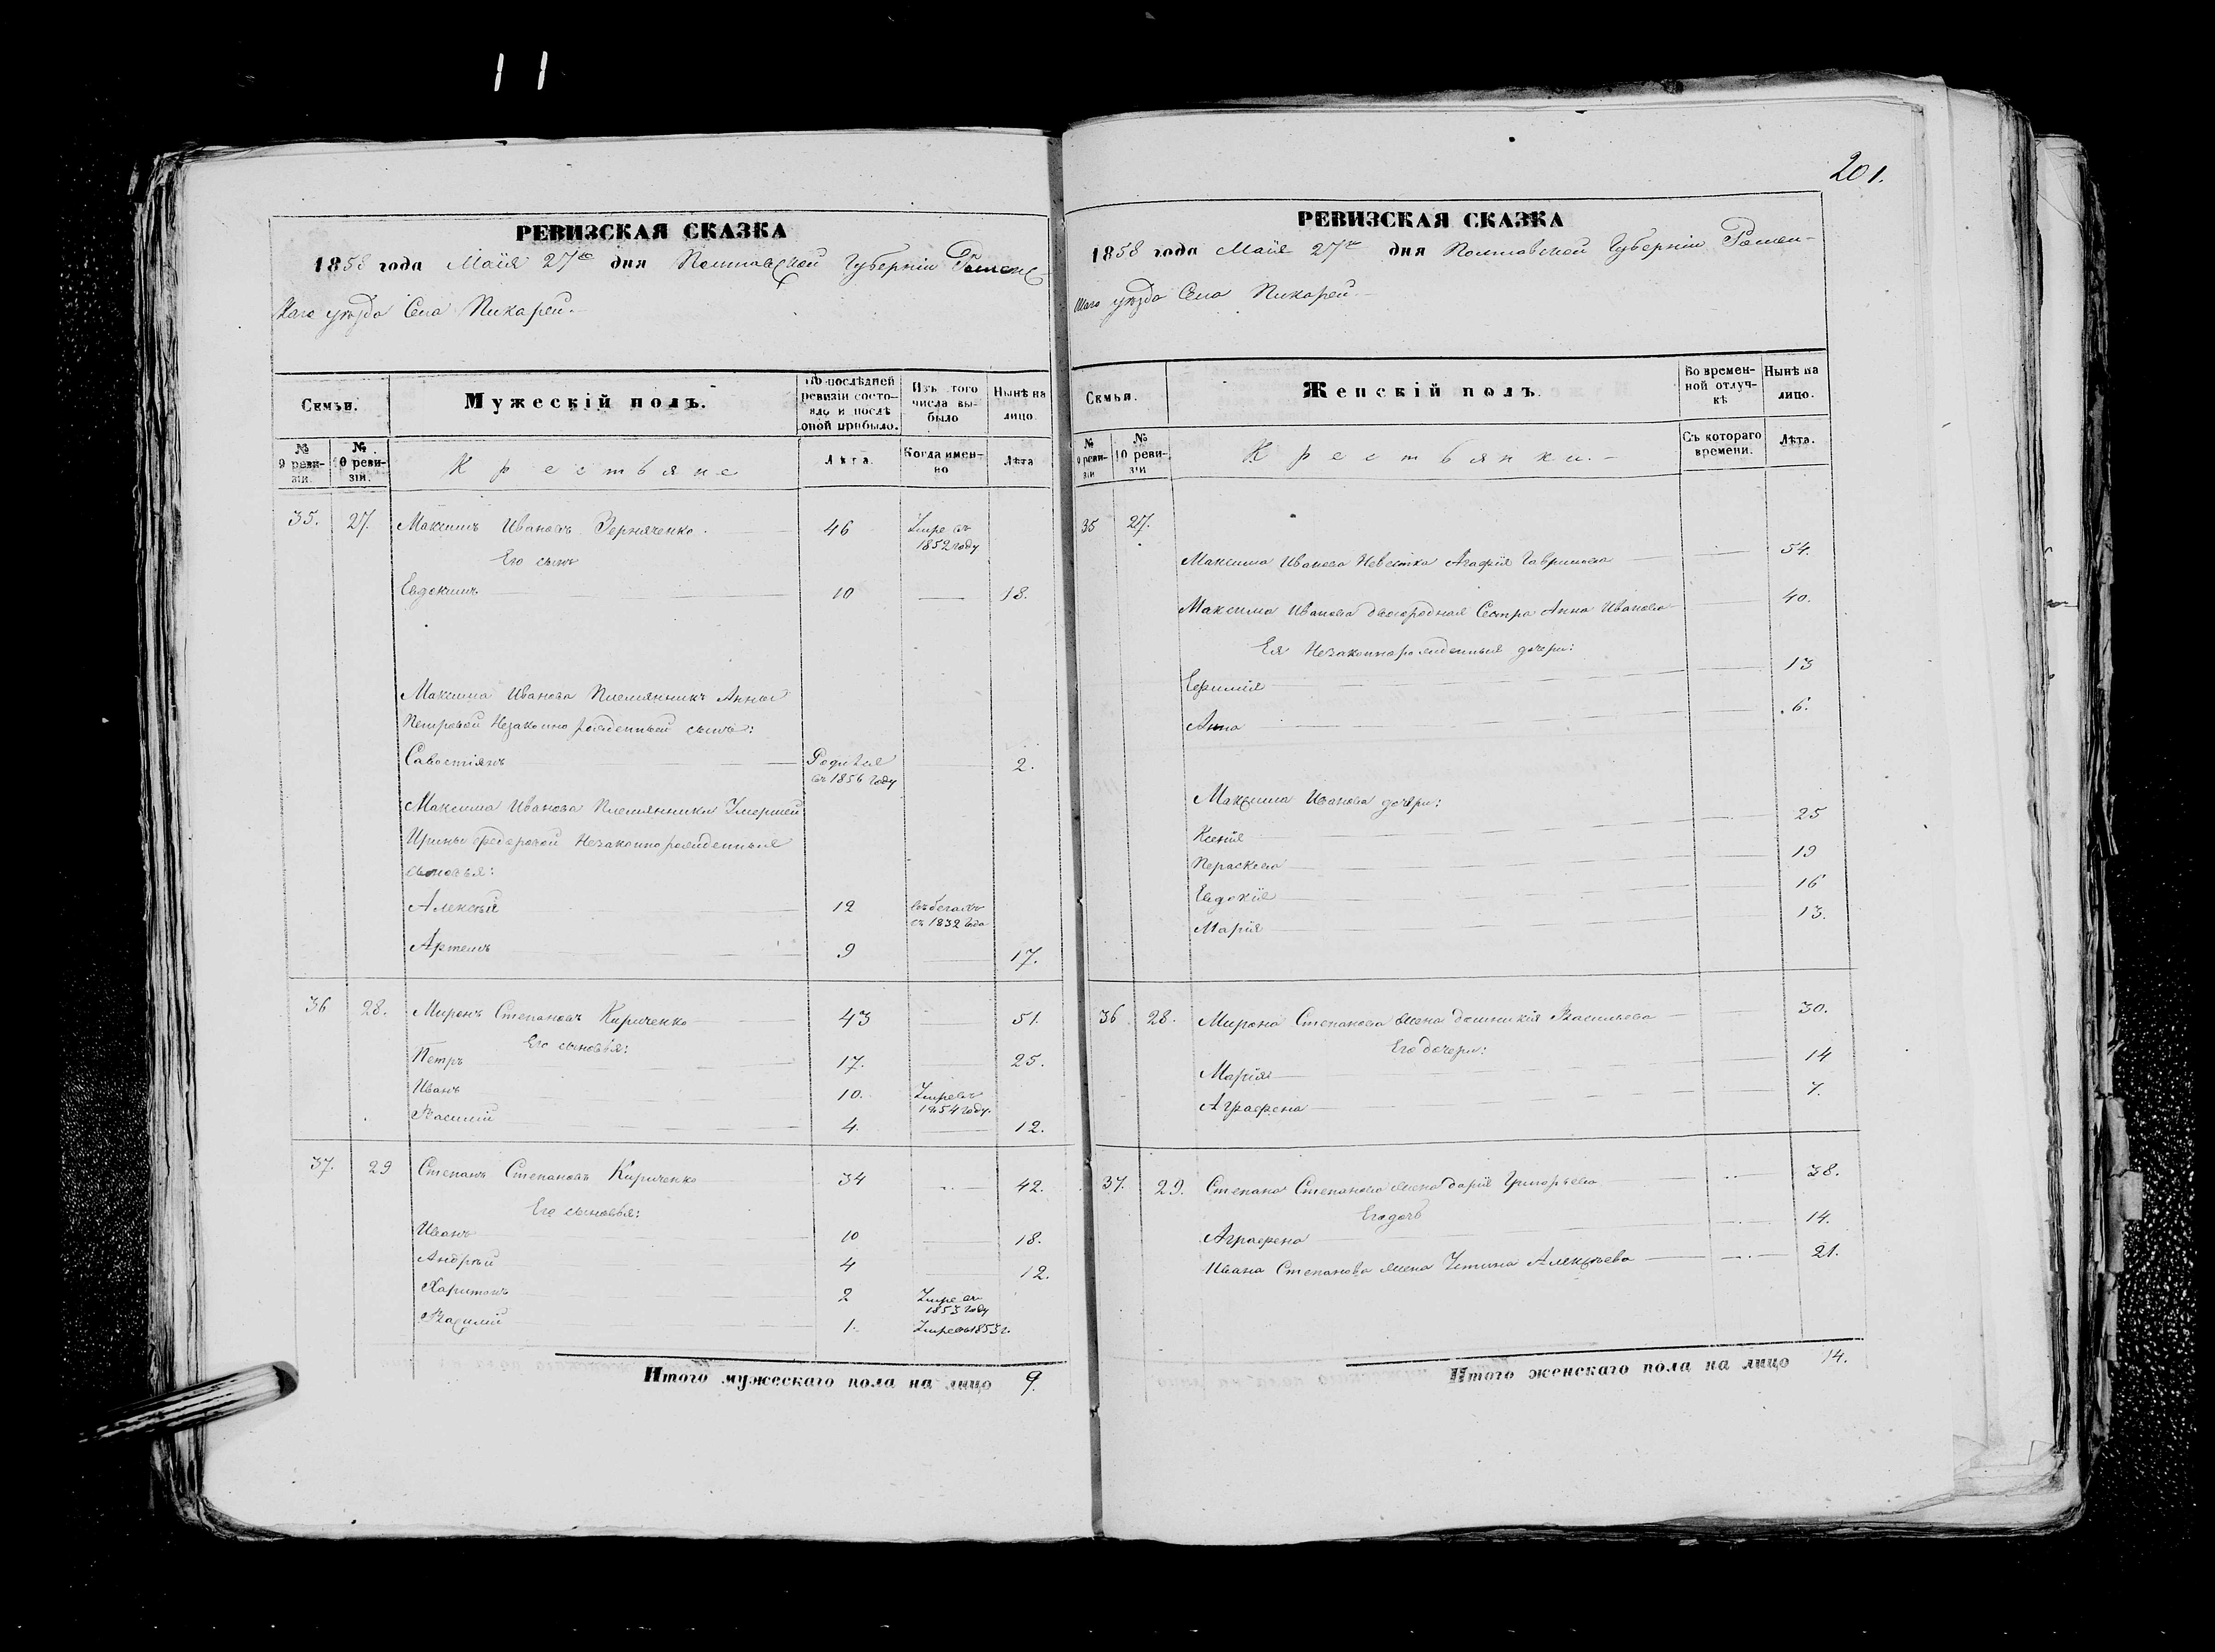 11
РЕВИЗСКАЯ СКАЗКА
1858 года Маія 27го дня Полтавской Губерніи Роменс
каго уѣзда Села Пикарей.
Семьи. Мужескій полъ. По послѣдней ревизіи состояло и послѣ оной прибыло. Изъ того числа выбыло Нынѣ на лицо.
№ 9 ревизіи. № 10 ревизіи. Крестьяне Лѣта. Когда именно Лѣта
35. 27. Максимъ Ивановъ Зерняченко. 46 Умре въ
1852 году
Его сынъ
Евдокимъ 10 18.
Максима Иванова Племянникъ Анны
Петровой Незаконно рожденный сынъ:
Савостіянъ Родился 2.
въ 1856 году
Максима Иванова Племянники Умершей
Ирины Федоровой Незаконнорожденные
сыновья:
Алексѣй 12 въ бегахъ
съ 1832 года
Артемъ 9 17.
36 28. Миронъ Степановъ Кириченко 43 51.
Его сыновья:
Петръ 17. 25.
Иванъ 10. Умре въ
1854 году.
Василій 4. 12.
37. 29 Степанъ Степановъ Кириченко 34 42.
Его сыновья:
Иванъ 10 18.
Андрѣй 4 12.
Харитонъ 2 Умре въ
1853 году
Василій 1. Умре въ 1853 г.
Итого мужескаго пола на лицо 9.
201.
РЕВИЗСКАЯ СКАЗКА
1858 года Маія 27го дня Полтавской Губерніи Ромен-
скаго уѣзда Села Пикарей.
Семья. Женскій полъ. Во временной отлучкѣ Нынѣ на лицо.
№ 9 ревизіи № 10 ревизіи Крестьянки. Съ котораго времени. Лѣта.
35 27.
Максима Иванова Невѣстка Агафія Гаврилова 54.
Максима Иванова двоюродная Сестра Анна Иванова 40.
Ея Незаконнорожденныя дочери:
Ефимія 13
Анна 6.
Максима Иванова дочери:
Ксенія 25
Пераскева 19
Евдокія 16
Марія 13.
36. 28. Мирона Степанова жена Домникія Васильева 30.
Его дочери:
Марія 14
Аграфена 7.
37. 29. Степана Степанова жена Дарія Григорьева 38.
Его дочь
Аграфена 14.
Ивана Степанова жена Устина Алексѣева 21.
Итого женскаго пола на лицо 14.